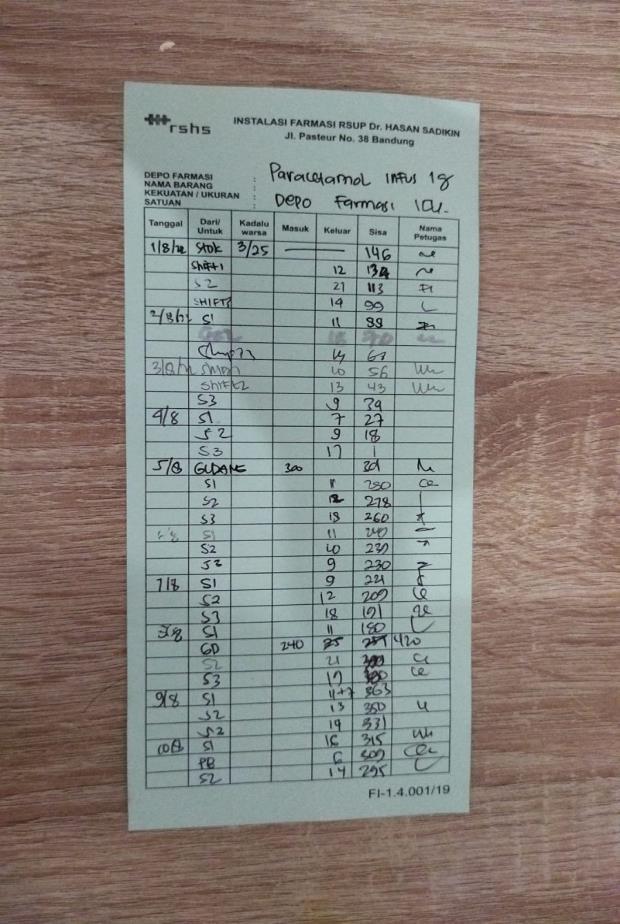 rshs
INSTALASI FARMASI RSUP Dr. HASAN SADIKIN
Jl. Pasteur No. 38 Bandung
DEPO FARMASI :
NAMA BARANG : Paracetamol infus 1g
KEKUATAN / UKURAN :
SATUAN : Depo Farmasi ICU.
Tanggal Dari/Untuk Kadaluwarsa Masuk Keluar Sisa Nama Petugas
1/8/22 Stok 3/25 146
Shift1 12 134
S2 21 113
SHIFT3 14 99
2/8/22 S1 11 88
14
3/8/22 Shift1 10 56
Shift2 13 43
S3 9
4/8 S1 7 27
S2 9 18
S3 17 1
5/8 GUDANG 300
S1
S2 12 278
S3 18 260
S1 11
S2 10 239
9 230
7/8 S1 9 221
S2 12 209
S3 18 191
S1 11 180
GD 240 420
S2 21
S3
9/8 S1 11+7 363
S2 13 350
19 331
10/8 S1 16 315
PB 6 309
S2 14 295
FI-1.4.001/19